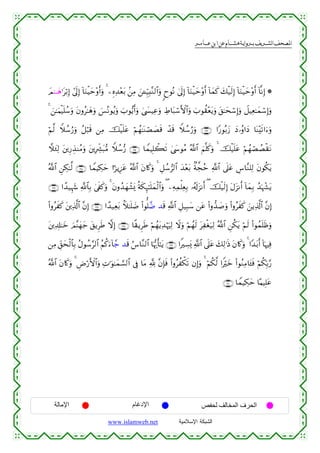 المصحف الشريف برواية هشام عن ابن عامر
۞ إِنَّا أَوْحَيْنَا إِلَيْكَ كَمَا أَوْحَيْنَا إِلَىٰ نُوحٍ وَٱلنَّبِيِّـۧنَ مِنۢ بَعْدِهِۦ ۚ وَأَوْحَيْنَا إِلَىٰ إِبْرَٰهَٰمَ
وَإِسْمَٰعِيلَ وَإِسْحَٰقَ وَيَعْقُوبَ وَٱلْأَسْبَاطِ وَعِيسَىٰ وَأَيُّوبَ وَيُونُسَ وَهَٰرُونَ وَسُلَيْمَٰنَ ۚ
وَءَاتَيْنَا دَاوُۥدَ زَبُورًا وَرُسُلًا قَدْ قَصَصْنَٰهُمْ عَلَيْكَ مِن قَبْلُ وَرُسُلًا لَّمْ
نَقْصُصْهُمْ عَلَيْكَ ۚ وَكَلَّمَ ٱللَّهُ مُوسَىٰ تَكْلِيمًا رُّسُلًا مُّبَشِّرِينَ وَمُنذِرِينَ لِئَلَّا
يَكُونَ لِلنَّاسِ عَلَى ٱللَّهِ حُجَّةٌۢ بَعْدَ ٱلرُّسُلِ ۚ وَكَانَ ٱللَّهُ عَزِيزًا حَكِيمًا لَّٰكِنِ ٱللَّهُ
يَشْهَدُ بِمَا أَنزَلَ إِلَيْكَ ۖ أَنزَلَهُۥ بِعِلْمِهِۦ ۖ وَٱلْمَلَٰئِكَةُ يَشْهَدُونَ ۚ وَكَفَىٰ بِٱللَّهِ شَهِيدًا
إِنَّ ٱلَّذِينَ كَفَرُوا۟ وَصَدُّوا۟ عَن سَبِيلِ ٱللَّهِ قَد ضَّلُّوا۟ ضَلَٰلًۢا بَعِيدًا إِنَّ ٱلَّذِينَ كَفَرُوا۟
وَظَلَمُوا۟ لَمْ يَكُنِ ٱللَّهُ لِيَغْفِرَ لَهُمْ وَلَا لِيَهْدِيَهُمْ طَرِيقًا إِلَّا طَرِيقَ جَهَنَّمَ خَٰلِدِينَ
فِيهَا أَبَدًا ۚ وَكَانَ ذَٰلِكَ عَلَى ٱللَّهِ يَسِيرًا يَٰأَيُّهَا ٱلنَّاسُ قَد جَّاءَكُمُ ٱلرَّسُولُ بِٱلْحَقِّ مِن
رَّبِّكُمْ فَـَٔامِنُوا۟ خَيْرًا لَّكُمْ ۚ وَإِن تَكْفُرُوا۟ فَإِنَّ لِلَّهِ مَا فِى ٱلسَّمَٰوَٰتِ وَٱلْأَرْضِ ۚ وَكَانَ ٱللَّهُ
عَلِيمًا حَكِيمًا
الحرف المخالف لحفص الإدغام الإمالة
الشبكة الإسلامية www.islamweb.net